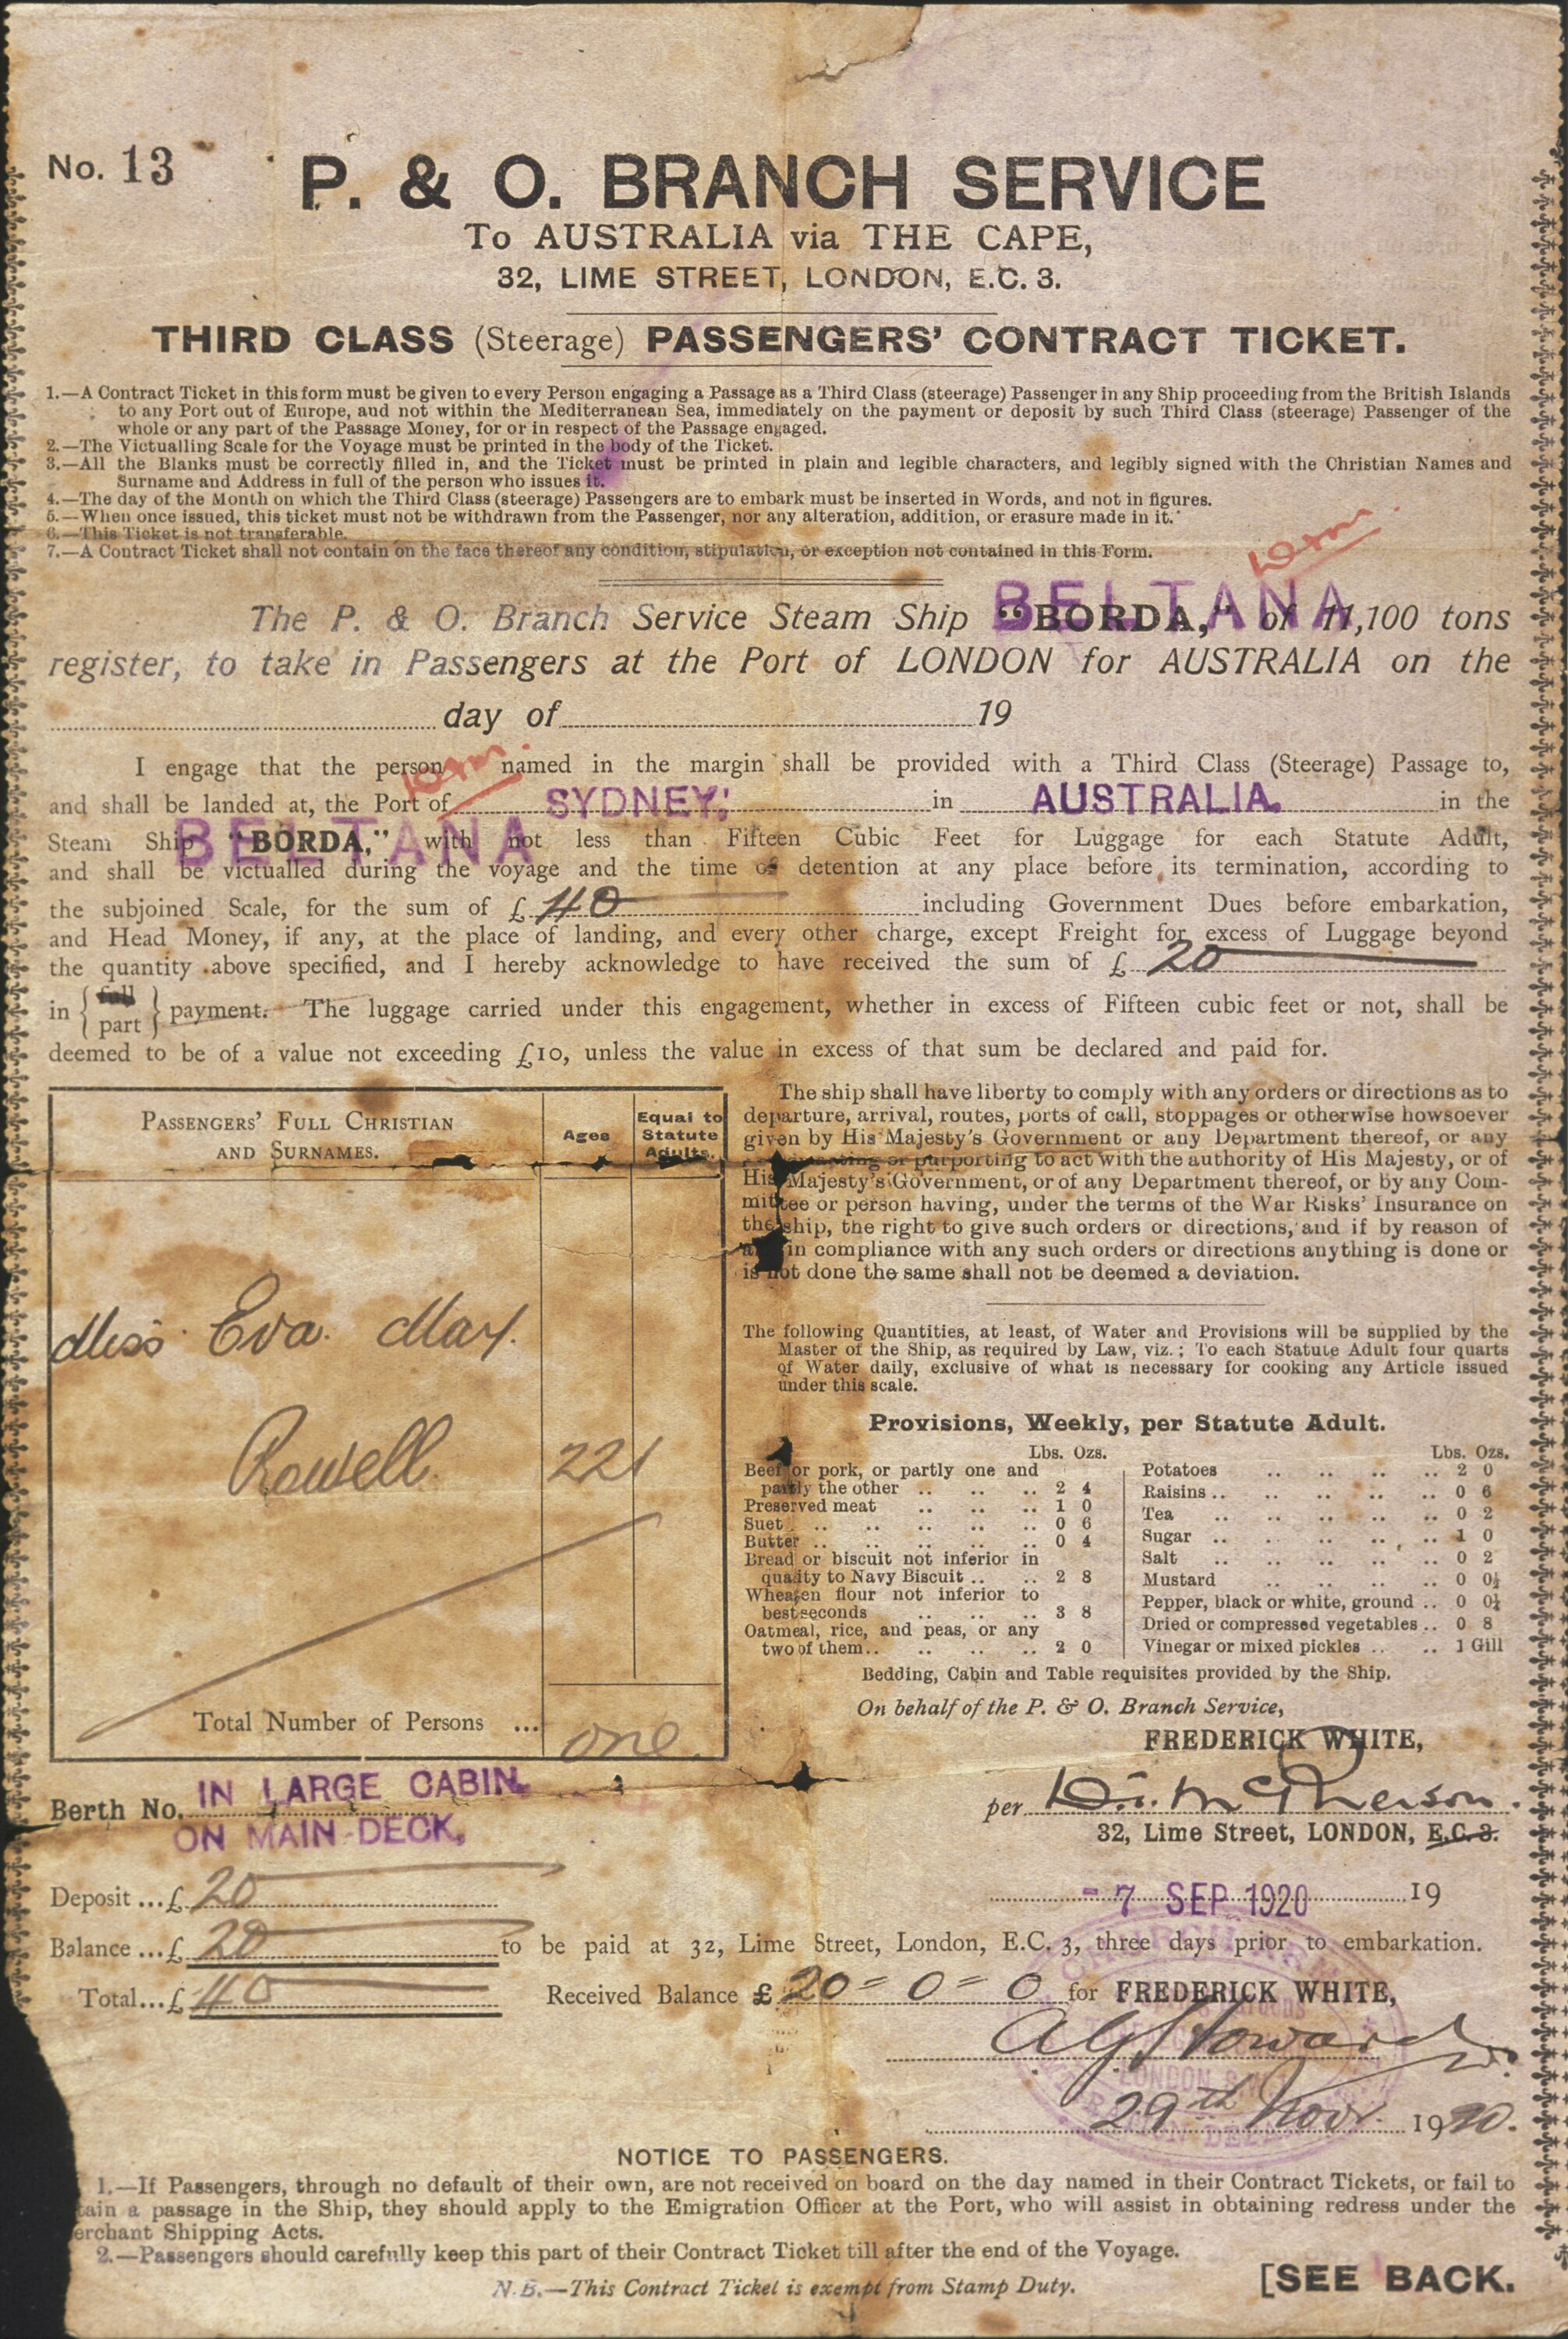 No. 13
P. & O. BRANCH SERVICE
To AUSTRALIA via THE CAPE,
32, LIME STREET, LONDON, E.C. 3.
THIRD CLASS (Steerage) PASSENGERS' CONTRACT TICKET.
1.—A Contract Ticket in this form must be given to every Person engaging a Passage as a Third Class (steerage) Passenger in any Ship proceeding from the British Islands
to any Port out of Europe, and not within the Mediterranean Sea, immediately on the payment or deposit by such Third Class (steerage) Passenger of the
whole or any part of the Passage Money, for or in respect of the Passage engaged.
2.—The Victualling Scale for the Voyage must be printed in the body of the Ticket.
3.—All the Blanks must be correctly filled in, and the Ticket must be printed in plain and legible characters, and legibly signed with the Christian Names and
Surname and Address in full of the person who issues it.
4.—The day of the Month on which the Third Class (steerage) Passengers are to embark must be inserted in Words, and not in figures.
5.—When once issued, this ticket must not be withdrawn from the Passenger, nor any alteration, addition, or erasure made in it.
6.—This Ticket is not transferable.
7.—A Contract Ticket shall not contain on the face thereof any condition, stipulation, or exception not contained in this Form.
BELTANA
The P. & O. Branch Service Steam Ship "BORDA," of 11,100 tons
register, to take in Passengers at the Port of LONDON for AUSTRALIA on the
day of 19
I engage that the person named in the margin shall be provided with a Third Class (Steerage) Passage to,
and shall be landed at, the Port of SYDNEY; in AUSTRALIA. in the
BELTANA
Steam Ship "BORDA," with not less than Fifteen Cubic Feet for Luggage for each Statute Adult,
and shall be victualled during the voyage and the time of detention at any place before its termination, according to
the subjoined Scale, for the sum of £ 40 including Government Dues before embarkation,
and Head Money, if any, at the place of landing, and every other charge, except Freight for excess of Luggage beyond
the quantity above specified, and I hereby acknowledge to have received the sum of £ 20
in { full
part } payment. The luggage carried under this engagement, whether in excess of Fifteen cubic feet or not, shall be
deemed to be of a value not exceeding £10, unless the value in excess of that sum be declared and paid for.
PASSENGERS' FULL CHRISTIAN
AND SURNAMES.
Ages
Equal to
Statute
Adults.
Miss Eva May.
Rowell 22 1
Total Number of Persons ... one.
The ship shall have liberty to comply with any orders or directions as to
departure, arrival, routes, ports of call, stoppages or otherwise howsoever
given by His Majesty's Government or any Department thereof, or any
acting or purporting to act with the authority of His Majesty, or of
His Majesty's Government, or of any Department thereof, or by any Com-
mittee or person having, under the terms of the War Risks' Insurance on
the ship, the right to give such orders or directions, and if by reason of
in compliance with any such orders or directions anything is done or
is not done the same shall not be deemed a deviation.
The following Quantities, at least, of Water and Provisions will be supplied by the
Master of the Ship, as required by Law, viz.; To each Statute Adult four quarts
of Water daily, exclusive of what is necessary for cooking any Article issued
under this scale.
Provisions, Weekly, per Statute Adult.
Lbs. Ozs.
Beef or pork, or partly one and
partly the other .. .. .. 2 4
Preserved meat .. .. .. 1 0
Suet .. .. .. .. .. 0 6
Butter .. .. .. .. .. 0 4
Bread or biscuit not inferior in
quality to Navy Biscuit .. .. 2 8
Wheaten flour not inferior to
best seconds .. .. .. 3 8
Oatmeal, rice, and peas, or any
two of them .. .. .. .. 2 0
Lbs. Ozs.
Potatoes .. .. .. .. 2 0
Raisins .. .. .. .. .. 0 6
Tea .. .. .. .. .. 0 2
Sugar .. .. .. .. .. 1 0
Salt .. .. .. .. .. 0 2
Mustard .. .. .. .. 0 0½
Pepper, black or white, ground .. 0 0¼
Dried or compressed vegetables .. 0 8
Vinegar or mixed pickles .. .. 1 Gill
Bedding, Cabin and Table requisites provided by the Ship.
On behalf of the P. & O. Branch Service,
FREDERICK WHITE,
per D. J. McPherson.
32, Lime Street, LONDON, E.C. 3.
- 7 SEP 1920 19
Berth No. IN LARGE CABIN.
ON MAIN DECK,
Deposit ... £ 20
Balance ... £ 20 to be paid at 32, Lime Street, London, E.C. 3, three days prior to embarkation.
Total ... £ 40 Received Balance £ 20 = 0 = 0 for FREDERICK WHITE,
A G Howard
29th Novr. 1920.
NOTICE TO PASSENGERS.
1.—If Passengers, through no default of their own, are not received on board on the day named in their Contract Tickets, or fail to
tain a passage in the Ship, they should apply to the Emigration Officer at the Port, who will assist in obtaining redress under the
erchant Shipping Acts.
2.—Passengers should carefully keep this part of their Contract Ticket till after the end of the Voyage.
N.B.—This Contract Ticket is exempt from Stamp Duty.
[SEE BACK.